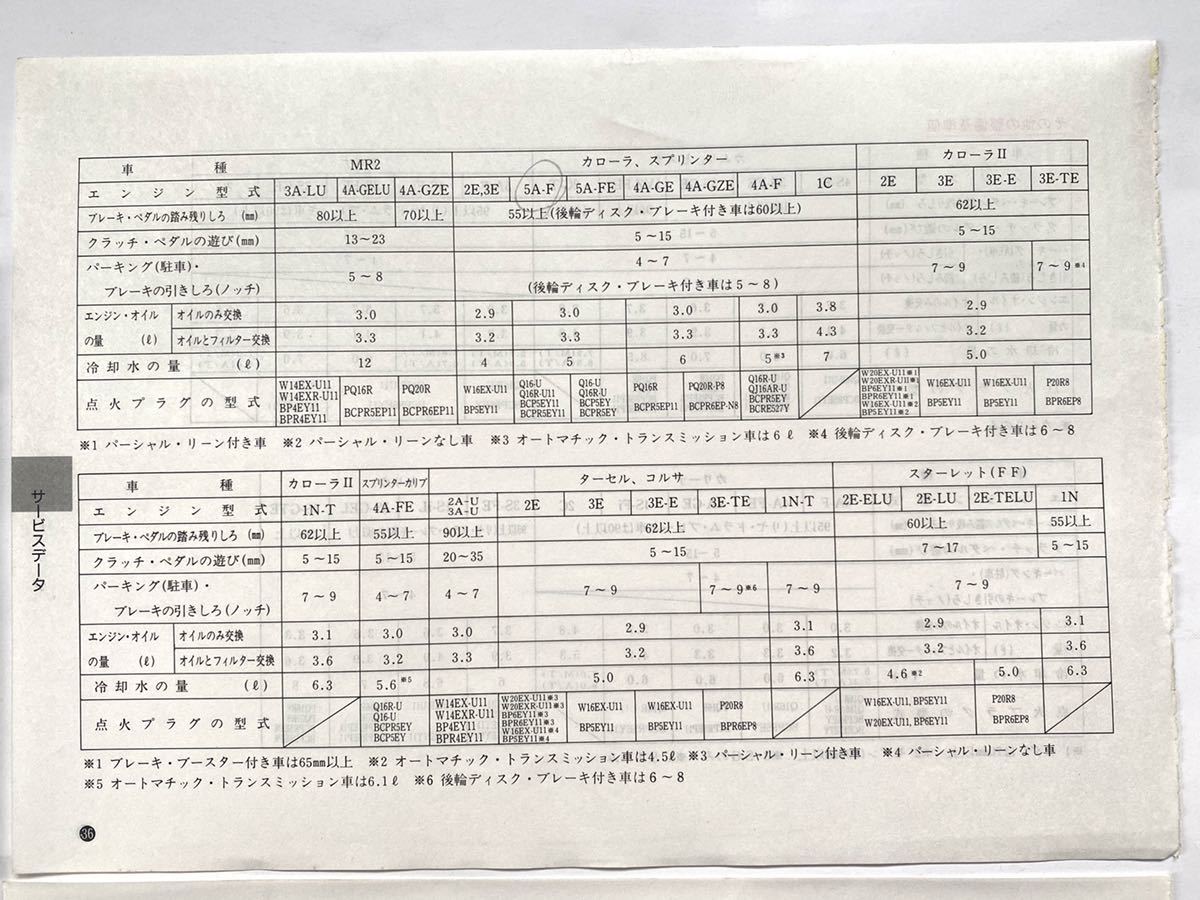 車種 MR2 カローラ、スプリンター カローラII
エンジン型式 3A-LU 4A-GELU 4A-GZE 2E,3E 5A-F 5A-FE 4A-GE 4A-GZE 4A-F 1C 2E 3E 3E-E 3E-TE
ブレーキ・ペダルの踏み残りしろ (mm) 80以上 70以上 55以上(後輪ディスク・ブレーキ付き車は60以上) 62以上
クラッチ・ペダルの遊び(mm) 13～23 5～15 5～15
パーキング(駐車)・
ブレーキの引きしろ(ノッチ) 5～8 4～7 (後輪ディスク・ブレーキ付き車は5～8) 7～9 7～9※4
エンジン・オイルの量 (ℓ) オイルのみ交換 3.0 2.9 3.0 3.0 3.0 3.8 2.9
オイルとフィルター交換 3.3 3.2 3.3 3.3 3.3 4.3 3.2
冷却水の量 (ℓ) 12 4 5 6 5※3 7 5.0
点火プラグの型式
W14EX-U11
W14EXR-U11
BP4EY11
BPR4EY11
PQ16R
BCPR5EP11
PQ20R
BCPR6EP11
W16EX-U11
BP5EY11
Q16-U
Q16R-U11
BCP5EY11
BCPR5EY11
Q16-U
Q16R-U
BCP5EY
BCPR5EY
PQ16R
BCPR5EP11
PQ20R-P8
BCPR6EP-N8
Q16R-U
QJ16AR-U
BCPR5EY
BCRE527Y
W20EX-U11※1
W20EXR-U11※1
BP6EY11※1
BPR6EY11※1
W16EX-U11※2
BP5EY11※2
W16EX-U11
BP5EY11
W16EX-U11
BP5EY11
P20R8
BPR6EP8
※1 パーシャル・リーン付き車 ※2 パーシャル・リーンなし車 ※3 オートマチック・トランスミッション車は6ℓ ※4 後輪ディスク・ブレーキ付き車は6～8
サービスデータ
車種 カローラII スプリンターカリブ ターセル、コルサ スターレット(FF)
エンジン型式 1N-T 4A-FE 2A-U 3A-U 2E 3E 3E-E 3E-TE 1N-T 2E-ELU 2E-LU 2E-TELU 1N
ブレーキ・ペダルの踏み残りしろ (mm) 62以上 55以上 90以上 62以上 60以上 55以上
クラッチ・ペダルの遊び(mm) 5～15 5～15 20～35 5～15 7～17 5～15
パーキング(駐車)・
ブレーキの引きしろ(ノッチ) 7～9 4～7 4～7 7～9 7～9※6 7～9 7～9
エンジン・オイルの量 (ℓ) オイルのみ交換 3.1 3.0 3.0 2.9 3.1 2.9 3.1
オイルとフィルター交換 3.6 3.2 3.3 3.2 3.6 3.2 3.6
冷却水の量 (ℓ) 6.3 5.6※5 5.0 6.3 4.6※2 5.0 6.3
点火プラグの型式
Q16R-U
Q16-U
BCPR5EY
BCP5EY
W14EX-U11
W14EXR-U11
BP4EY11
BPR4EY11
W20EX-U11※3
W20EXR-U11※3
BP6EY11※3
BPR6EY11※3
W16EX-U11※4
BP5EY11※4
W16EX-U11
BP5EY11
W16EX-U11
BP5EY11
P20R8
BPR6EP8
W16EX-U11, BP5EY11
W20EX-U11, BP6EY11
P20R8
BPR6EP8
※1 ブレーキ・ブースター付き車は65mm以上 ※2 オートマチック・トランスミッション車は4.5ℓ ※3 パーシャル・リーン付き車 ※4 パーシャル・リーンなし車
※5 オートマチック・トランスミッション車は6.1ℓ ※6 後輪ディスク・ブレーキ付き車は6～8
36